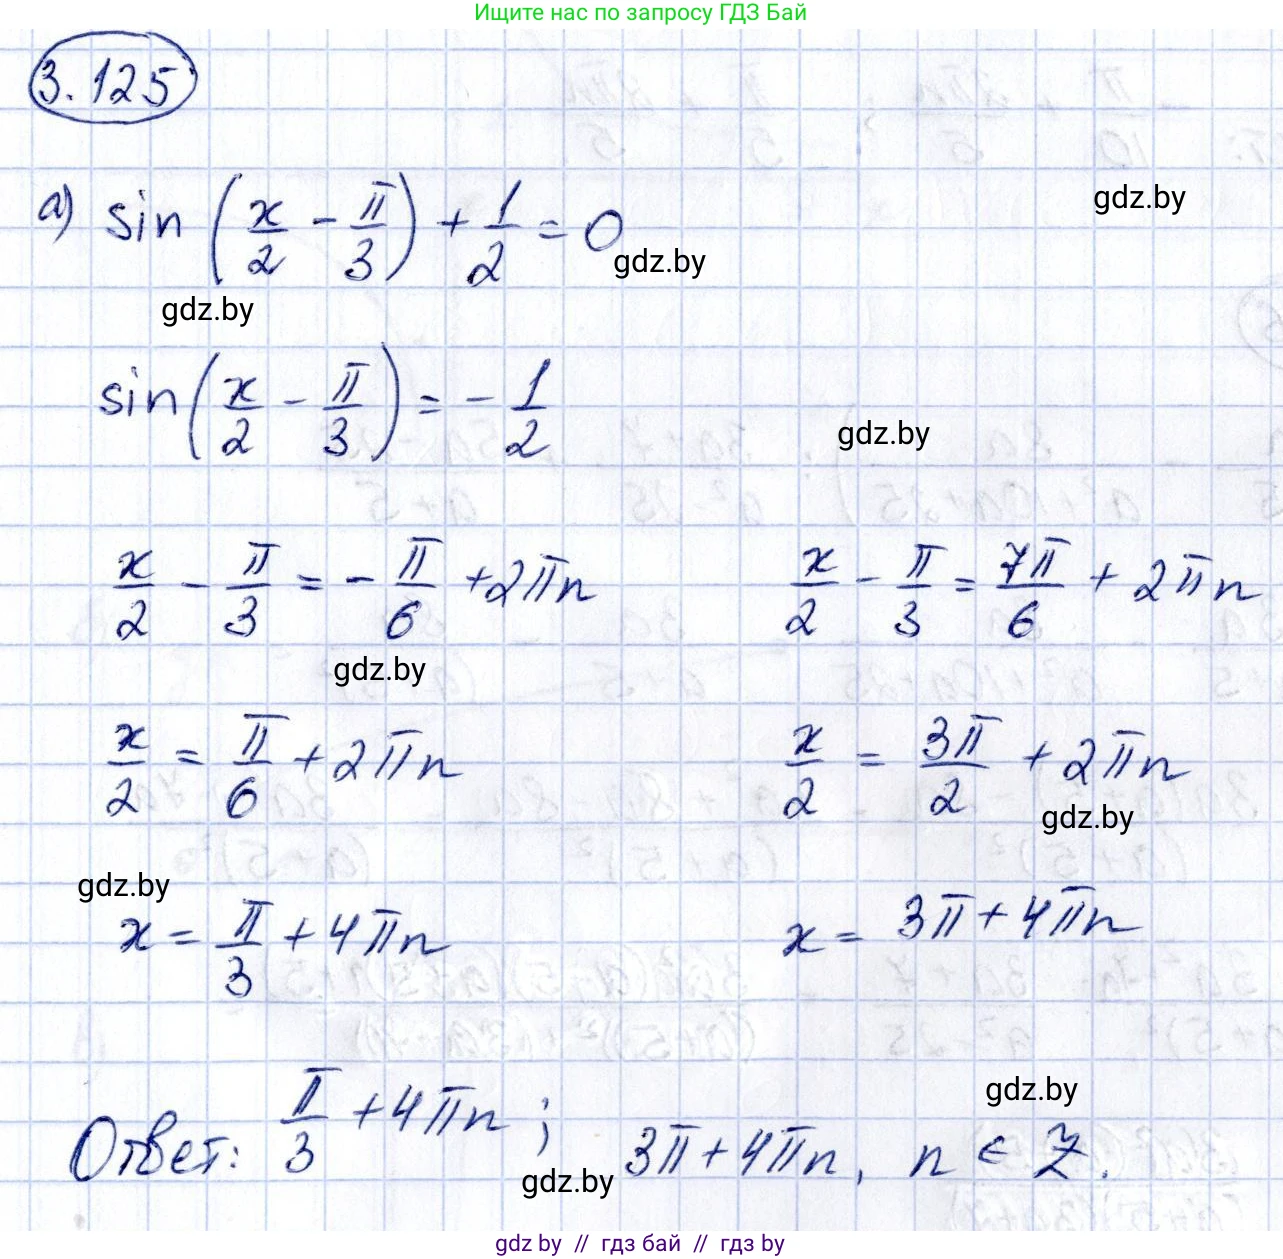 Ищите нас по запросу ГДЗ Бай
3.125
gdz.by
а) sin (x/2 - π/3) + 1/2 = 0
gdz.by
gdz.by
sin(x/2 - π/3) = - 1/2
gdz.by
x/2 - π/3 = - π/6 + 2πn x/2 - π/3 = 7π/6 + 2πn
gdz.by
x/2 = π/6 + 2πn x/2 = 3π/2 + 2πn
gdz.by
gdz.by
x = π/3 + 4πn x = 3π + 4πn
gdz.by
Ответ: π/3 + 4πn; 3π + 4πn, n ∈ Z.
gdz.by
gdz by // гдз бай // gdz by